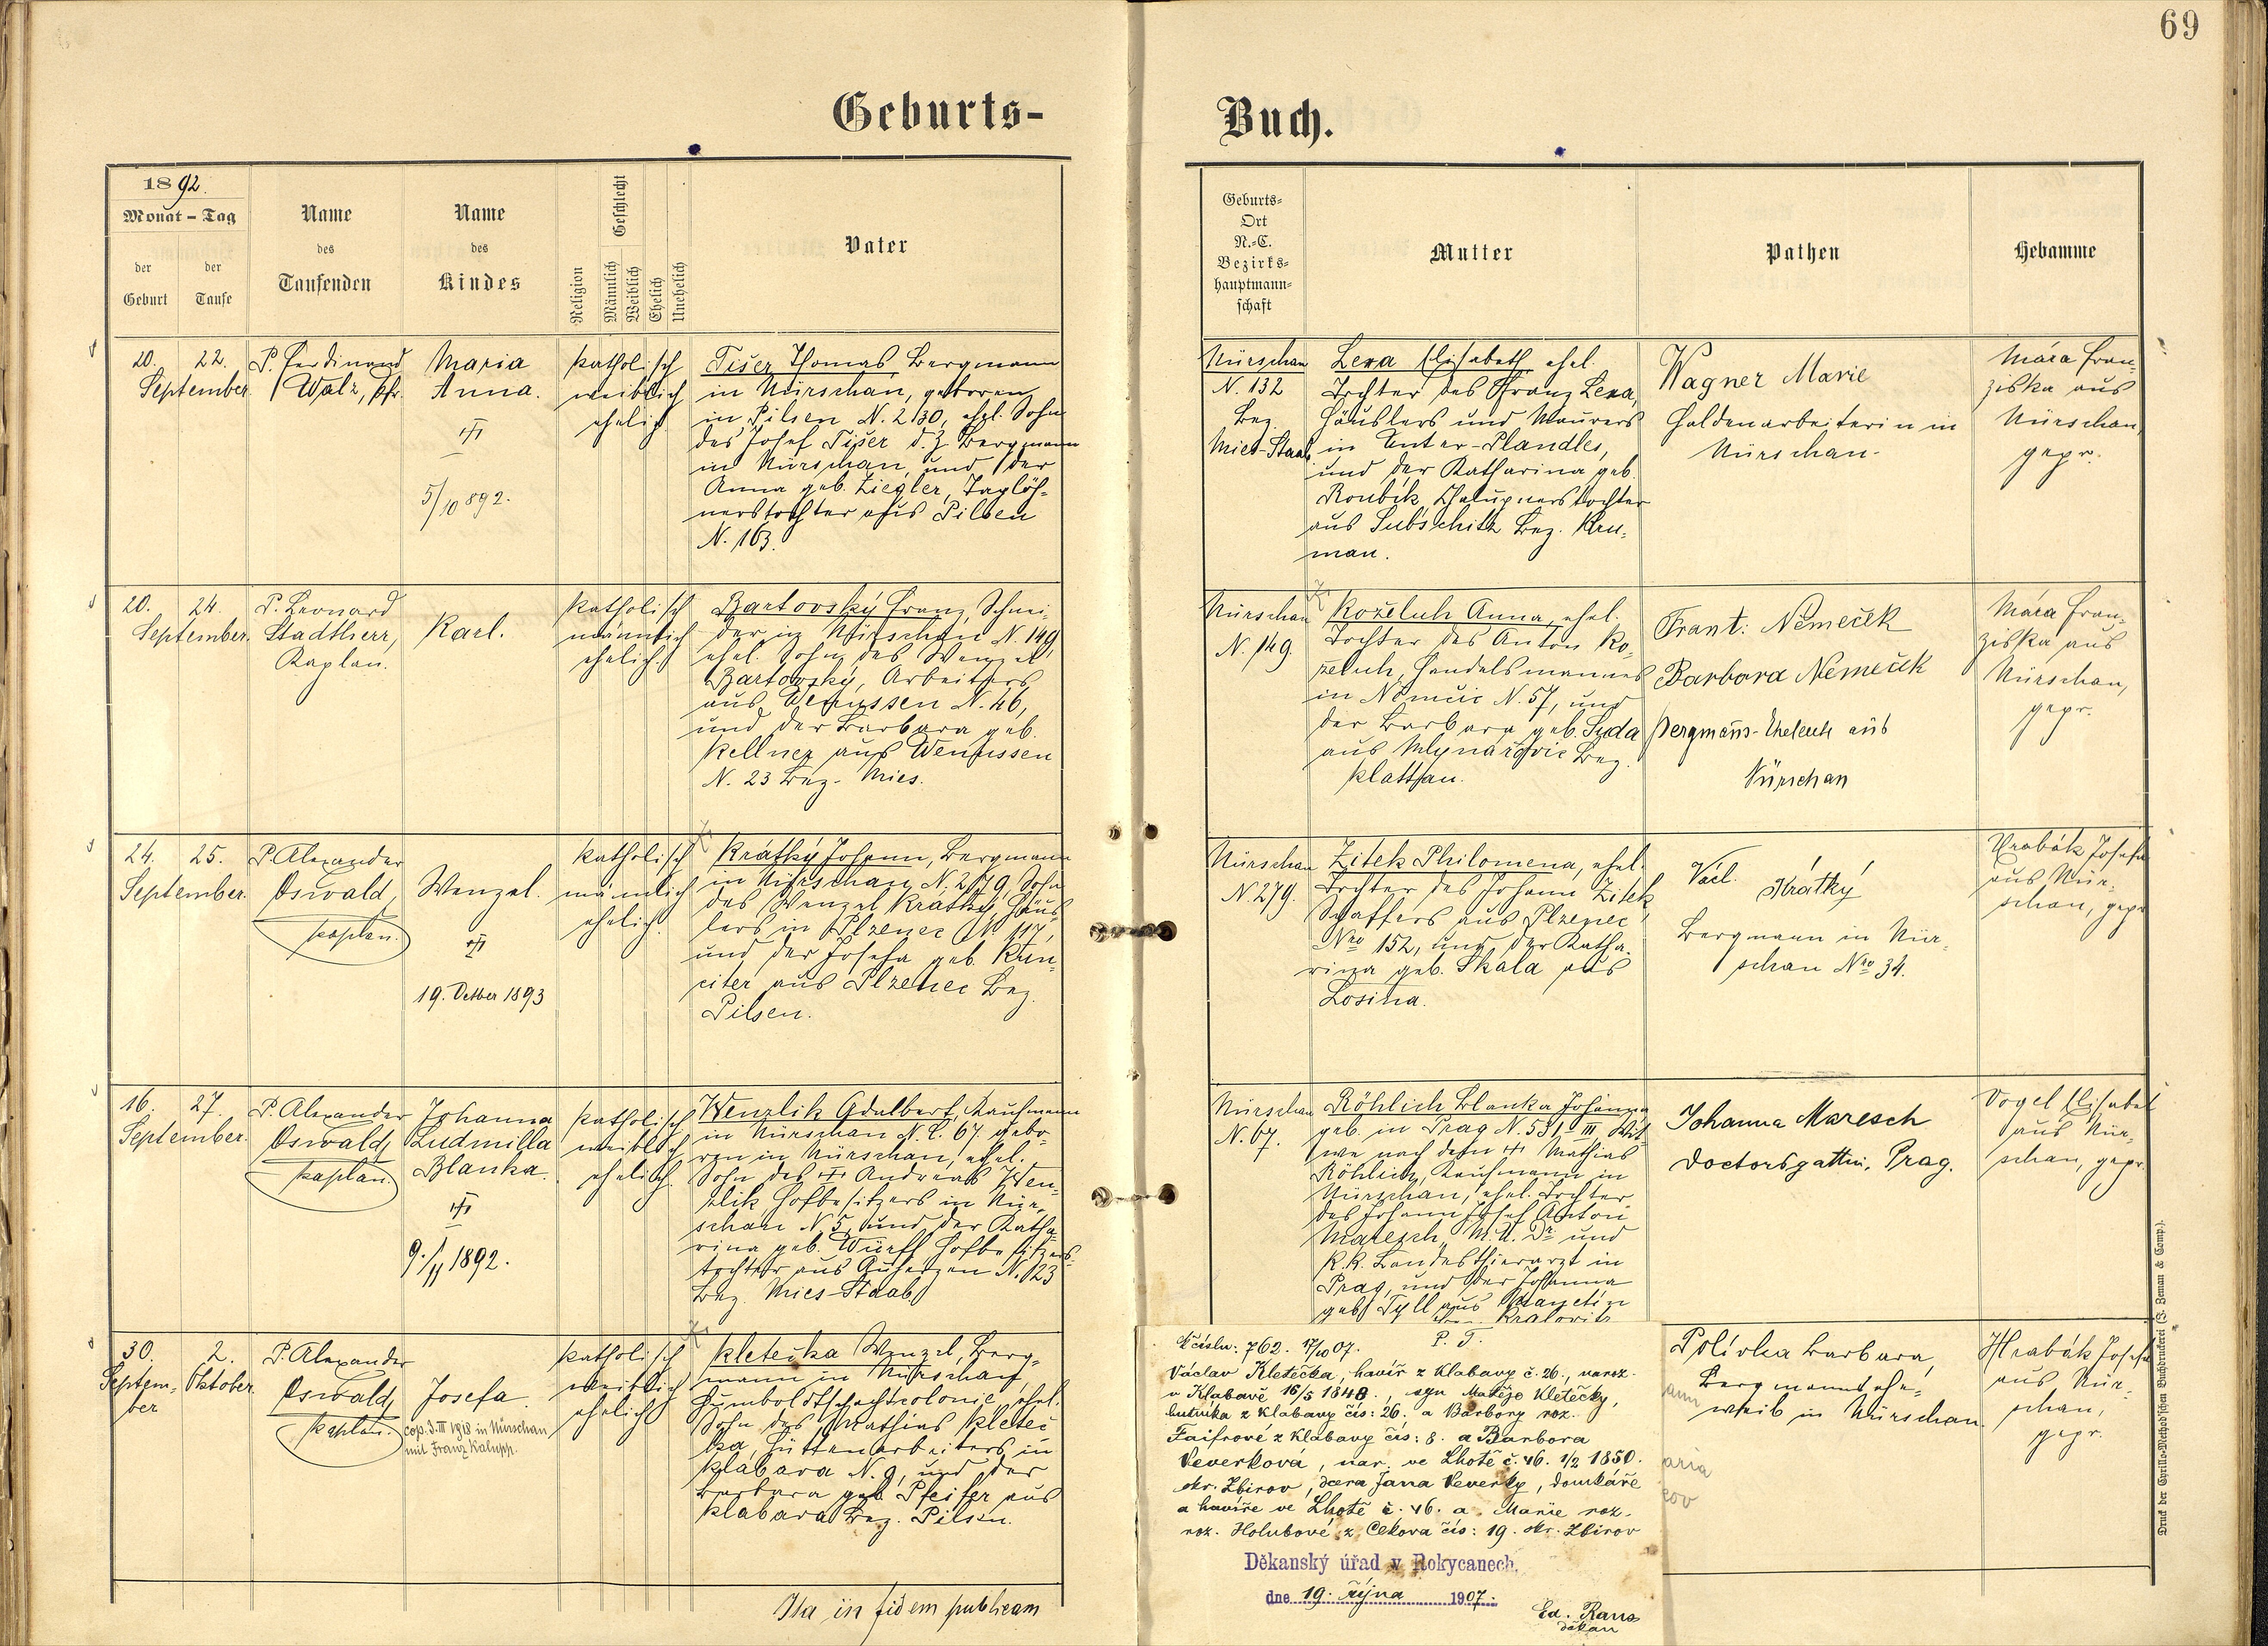 69
Geburts-
Buch.
1892.
Monat - Tag
der Geburt
der Taufe
Name des Taufenden
Name des Kindes
Religion
Geschlecht
Männlich
Weiblich
Ehelich
Unehelich
Vater
Geburts-
Ort
N.-C.
Bezirks-
hauptmann-
schaft
Mutter
Pathen
Hebamme
20. 22.
September.
P. Ferdinand
Walz, Pfr.
Maria
Anna.
5/10 892.
katholisch
weiblich
ehelich
Tišer Thomas Bergmann
in Nürschan, geboren
in Pilsen N. 230, ehel. Sohn
des Josef Tišer d. Z. Bergmann
in Nürschan, und der
Anna geb. Ziegler, Taglöh-
nerstochter aus Pilsen
N. 163.
Nürschan
N. 132
Bez.
Mies-Staab
Lexa Elisabeth, ehel.
Tochter des Franz Lexa,
Häuslers und Maurers
in Unter-Plandles,
und der Katharina geb.
Roubik, Chalupnerstochter
aus Subschitz Bez. Kru-
mau.
Wagner Marie
Haldenarbeiterin in
Nürschan.
Mára Fran-
ziska aus
Nürschan,
gepr.
20. 24.
September.
P. Leonard
Stadtherr,
Kaplan.
Karl.
katholisch
männlich
ehelich
Bartovský Franz, Schnei-
der in Nürschan N. 149,
ehel. Sohn des Wenzel
Bartovský, Arbeiters
aus Wenussen N. 46,
und der Barbara geb.
Kellner aus Wenussen
N. 23 Bez. Mies.
Nürschan
N. 149.
Koželuh Anna, ehel.
Tochter des Anton Ko-
želuh, Handelsmannes
in Němčic N. 57, und
der Barbara geb. Suda
aus Mlynařovic Bez.
Klattau.
Frant. Němeček
Barbora Němeček
Bergmans-Eheleute aus
Nürschan
Mára Fran-
ziska aus
Nürschan,
gepr.
24. 25.
September.
P. Alexander
Oswald,
Kaplan.
Wenzel.
19. October 1893
katholisch
männlich
ehelich.
Krátký Johann, Bergmann
in Nürschan N. 279, Sohn
des Wenzel Krátký, Häus-
lers in Plzenec N. 117,
und der Josefa geb. Kun-
citer aus Plzenec Bez.
Pilsen.
Nürschan
N. 279.
Zitek Philomena, ehel.
Tochter des Johann Zitek
Schaffers aus Plzenec
Nro 152, und der Katha-
rina geb. Skala aus
Losina.
Václ. Krátký
Bergmann in Nür-
schan Nro 34.
Hrabák Josefa
aus Nür-
schan, gepr.
16. 27.
September.
P. Alexander
Oswald,
Kaplan.
Johanna
Ludmilla
Blanka.
9./11 1892.
katholisch
weiblich
ehelich.
Wenzlik Adalbert, Kaufmann
in Nürschan N. C. 67. gebo-
ren in Nürschan, ehel.
Sohn des Andreas Wen-
zlik, Hofbesitzers in Nür-
schan N 5, und der Katha-
rina geb. Würfl Hofbesitzers-
tochter aus Auherzen N. 23
Bez. Mies-Staab
Nürschan
N. 67.
Röhlich Blanka Johanna
geb. in Prag N. 531 III, Wit-
we nach dem Mathias
Röhlich, Kaufmann in
Nürschan, ehel. Tochter
des Johann Josef Anton
Maresch, M. U. Dr und
k. k. Landesthierarzt in
Prag, und der Johanna
geb. Tyll aus Manetin
Kralowitz
Johanna Maresch
Doctorsgattin, Prag.
Vogel Elisabet
aus Nür-
schan, gepr.
30. 2.
Septem- Oktober.
ber
P. Alexander
Oswald,
Kaplan.
Josefa.
cop. 3. III 1918 in Nürschan
mit Franz Kalupp.
katholisch
weiblich
ehelich
Kletečka Wenzel, Berg-
mann in Nürschan,
Humboldtschachtcolonie, ehel.
Sohn des Mathias Kleteč-
ka, Hüttenarbeiters in
Klabava N. 9, und der
Barbara geb. Pfeifer aus
Klabava Bez. Pilsen.
K číslu: 762. 17/10 07. P. T.
Václav Kletečka, havíř z Klabavy č. 26., naroz.
v Klabavě 16/5 1848., syn Matěje Kletečky,
hutníka z Klabavy čís: 26, a Barbory roz.
Faifrové z Klabavy čís: 8. a Barbora
Veverková, nar. ve Lhotě č. 46. 1/2 1850.
okr. Zbirov, dcera Jana Veverky, domkáře
a havíře ve Lhotě č. 46. a Marie roz.
roz. Holubové z Cekova čís: 19. okr. Zbirov
Děkanský úřad v Rokycanech,
dne 19. října 1907.
Ed. Rans
děkan
Polívka Barbara,
Bergmannsehe-
weib in Nürschan.
Hrabák Josefa
aus Nür-
schan,
gepr.
Ita in fidem publicam
Druck der Cyrillo-Method'schen Buchdruckerei (J. Zeman & Comp.).